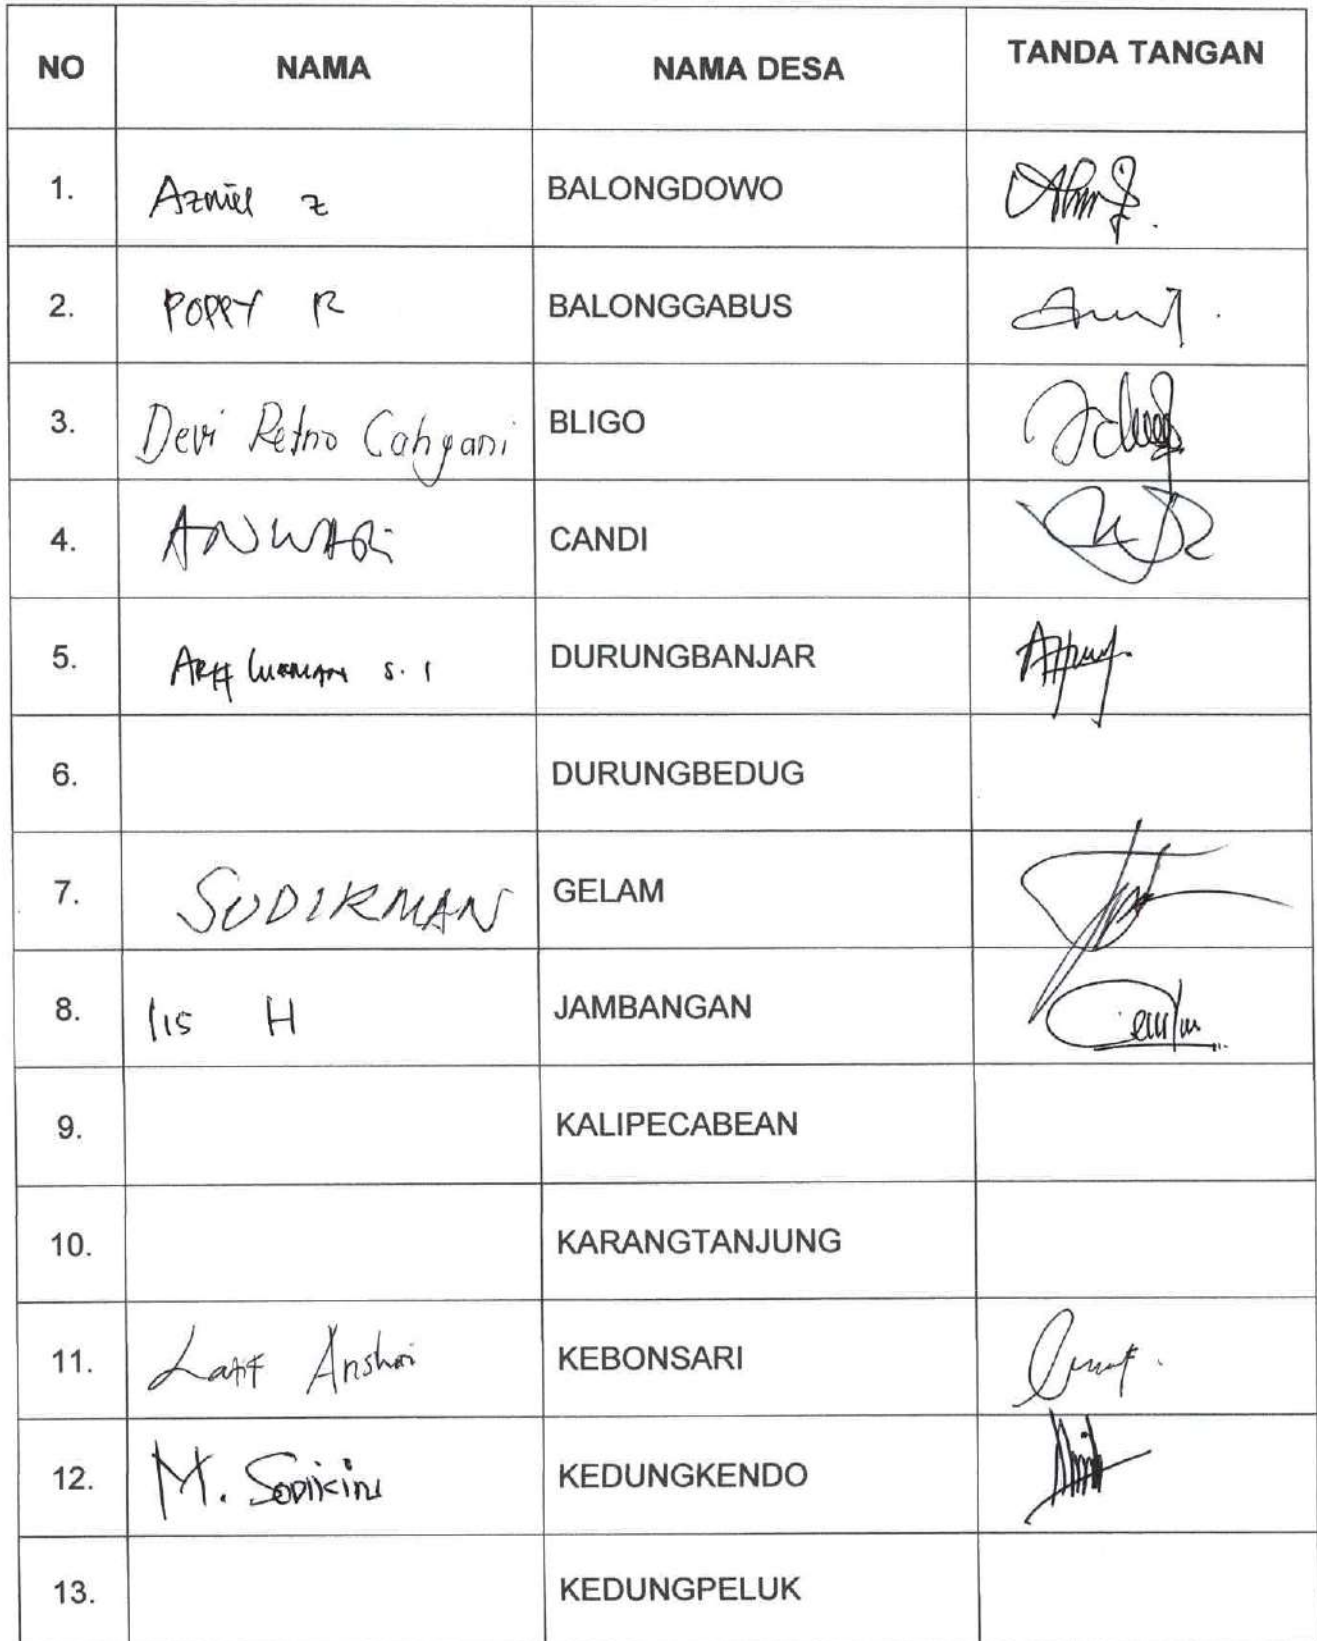 NO NAMA NAMA DESA TANDA TANGAN
1. Azmiel Z BALONGDOWO
2. POPPY R BALONGGABUS
3. Devi Retno Cahyani BLIGO
4. ANWARI CANDI
5. S. I DURUNGBANJAR
6. DURUNGBEDUG
7. SUDIRMAN GELAM
8. Iis H JAMBANGAN
9. KALIPECABEAN
10. KARANGTANJUNG
11. Latif Anshori KEBONSARI
12. M. Sodikin KEDUNGKENDO
13. KEDUNGPELUK